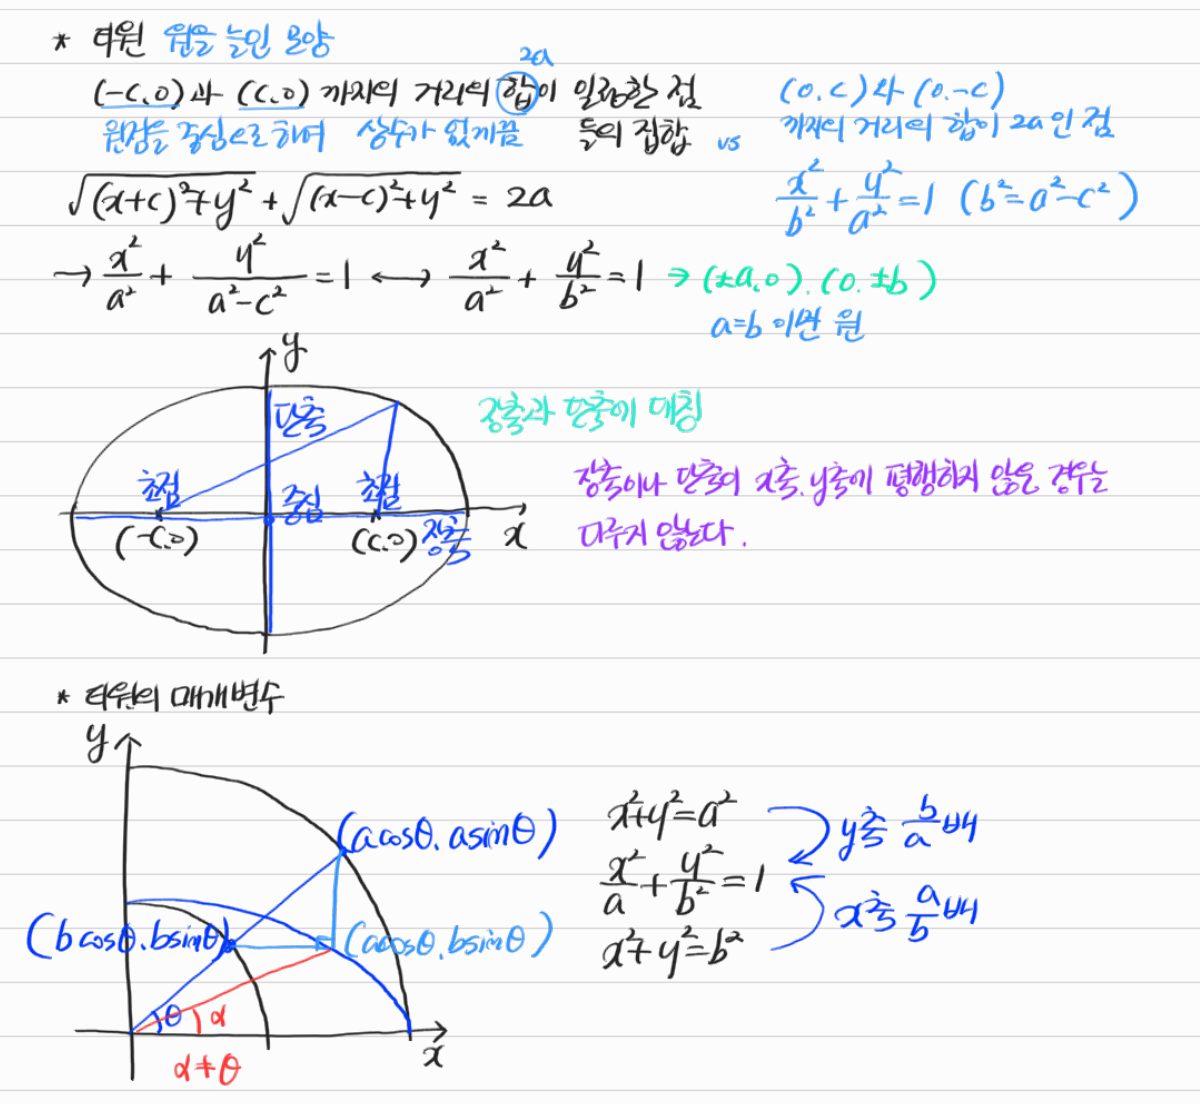 * 타원 원을 늘인 모양
2a
(-c.0)과 (c.0) 까지의 거리의 합이 일정한 점
들의 집합
원점을 중심으로 하여 상수가 없게끔
vs
(0.c)와 (0.-c)
까지의 거리의 합이 2a인 점
x²/b² + y²/a² = 1 (b²=a²-c²)
√((x+c)²+y²) + √((x-c)²+y²) = 2a
→ x²/a² + y²/(a²-c²) = 1 ⟷ x²/a² + y²/b² = 1 → (±a.0). (0. ±b)
a=b 이면 원
y
단축
초점
중심
초점
(-c.0)
(c.0)
장축
x
장축과 단축에 대칭
장축이나 단축이 x축.y축에 평행하지 않은 경우는
다루지 않는다.
* 타원의 매개변수
y
(acosθ. asinθ)
(bcosθ. bsinθ)
(acosθ. bsinθ)
θ
α
x
α≠θ
x²+y²=a²
x²/a + y²/b² = 1
x²+y²=b²
y축 b/a배
x축 a/b배